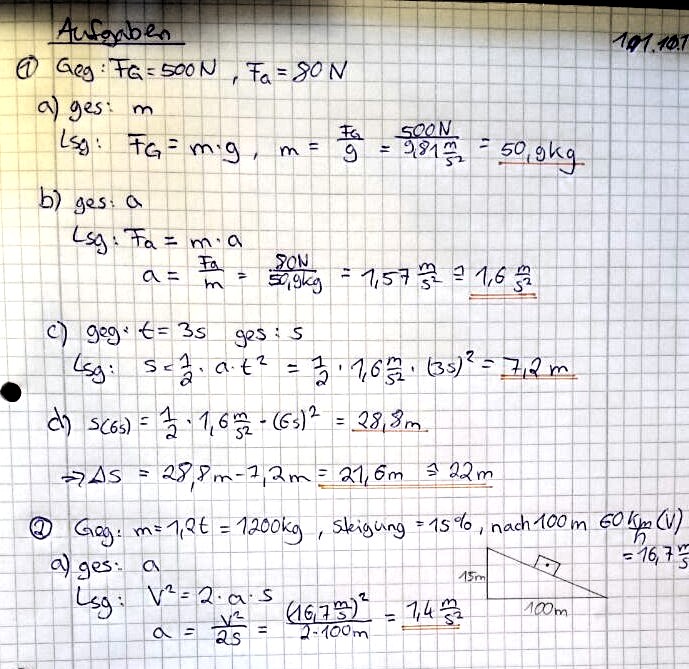 Aufgaben
① Geg: FG = 500N , Fa = 80N
a) ges: m
Lsg: FG = m·g , m = FG/g = 500N/9,81 m/s² = 50,9kg
b) ges: a
Lsg: Fa = m·a
a = Fa/m = 80N/50,9kg = 1,57 m/s² ≙ 1,6 m/s²
c) geg: t = 3s ges: s
Lsg: s = 1/2 · a·t² = 1/2 · 1,6 m/s² · (3s)² = 7,2 m
d) s(6s) = 1/2 · 1,6 m/s² · (6s)² = 28,8m
⇒ Δs = 28,8m - 7,2m = 21,6m ≙ 22m
② Geg: m = 1,2t = 1200kg , Steigung = 15%, nach 100m 60 km/h (V)
= 16,7 m/s
a) ges: a
15m
Lsg: V² = 2·a·s
100m
a = V²/2s = (16,7 m/s)²/2·100m = 1,4 m/s²